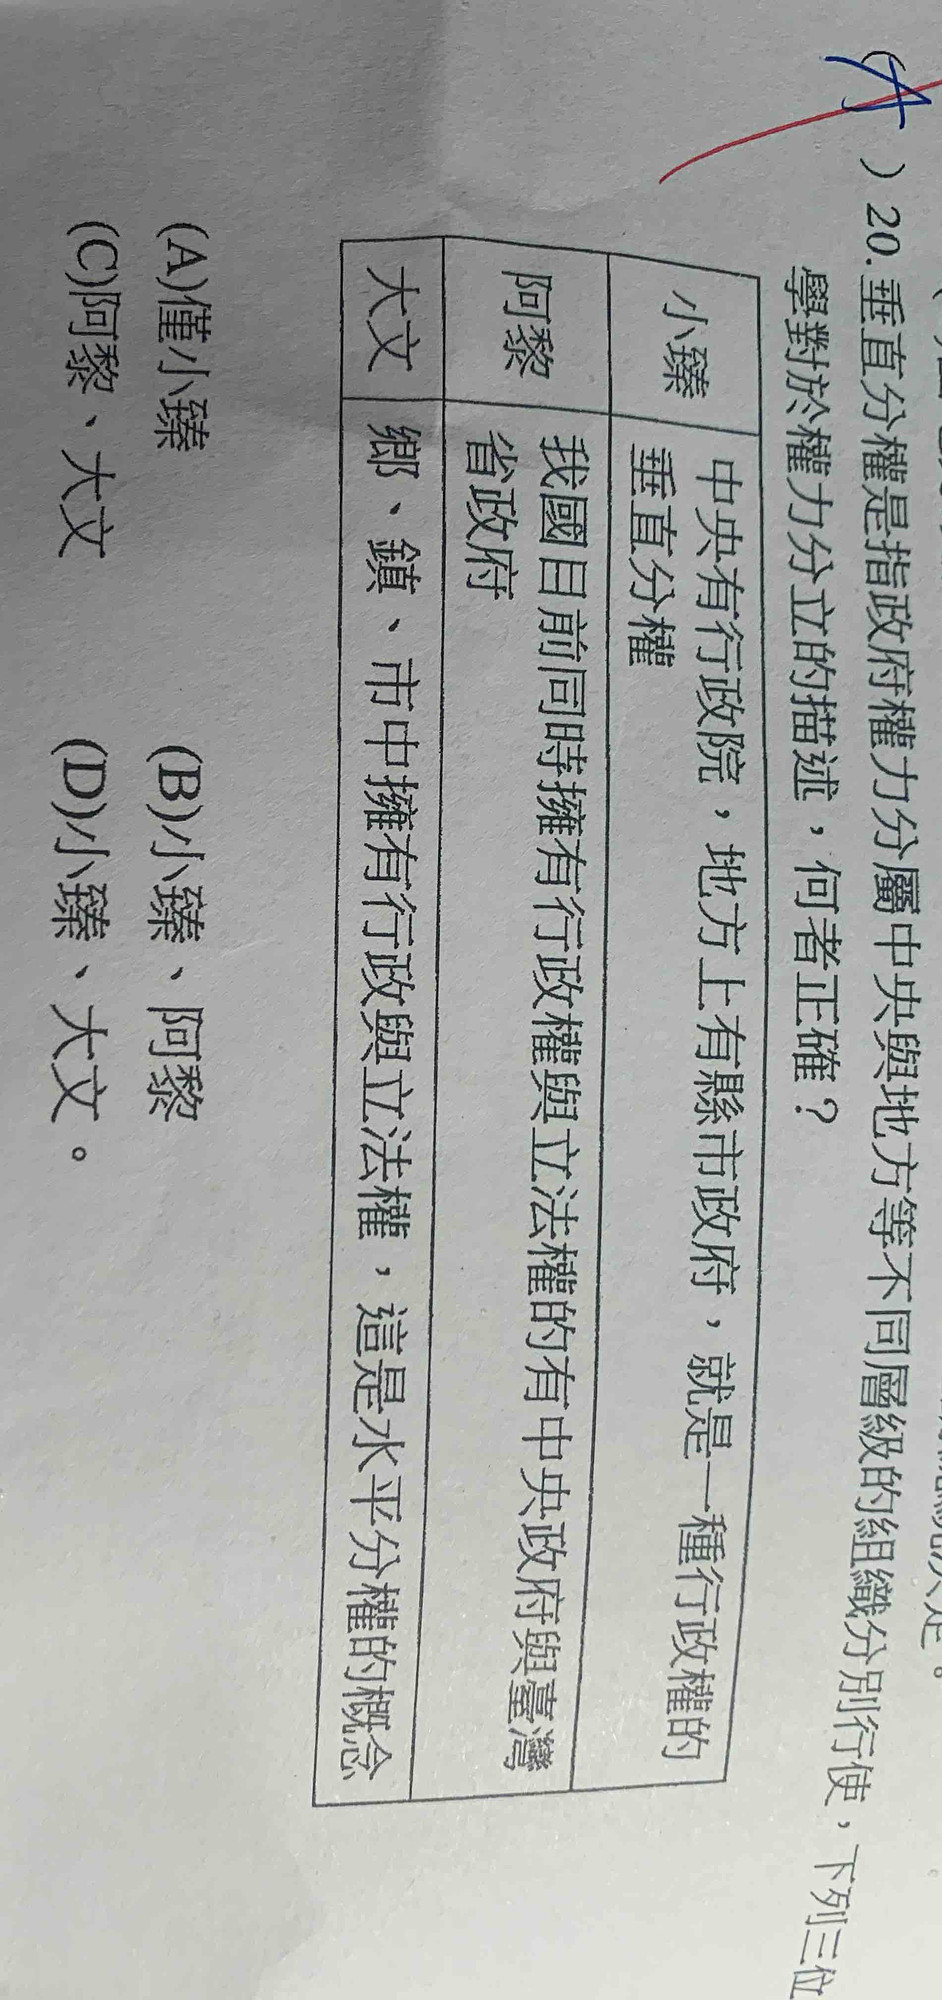 (A)20.垂直分權是指政府權力分屬中央與地方等不同層級的組織分別行使，下列三位
學對於權力分立的描述，何者正確？
小臻 中央有行政院，地方上有縣市政府，就是一種行政權的
垂直分權
阿黎 我國目前同時擁有行政權與立法權的有中央政府與臺灣
省政府
大文 鄉、鎮、市中擁有行政與立法權，這是水平分權的概念
(A)僅小臻 (B)小臻、阿黎
(C)阿黎、大文 (D)小臻、大文。